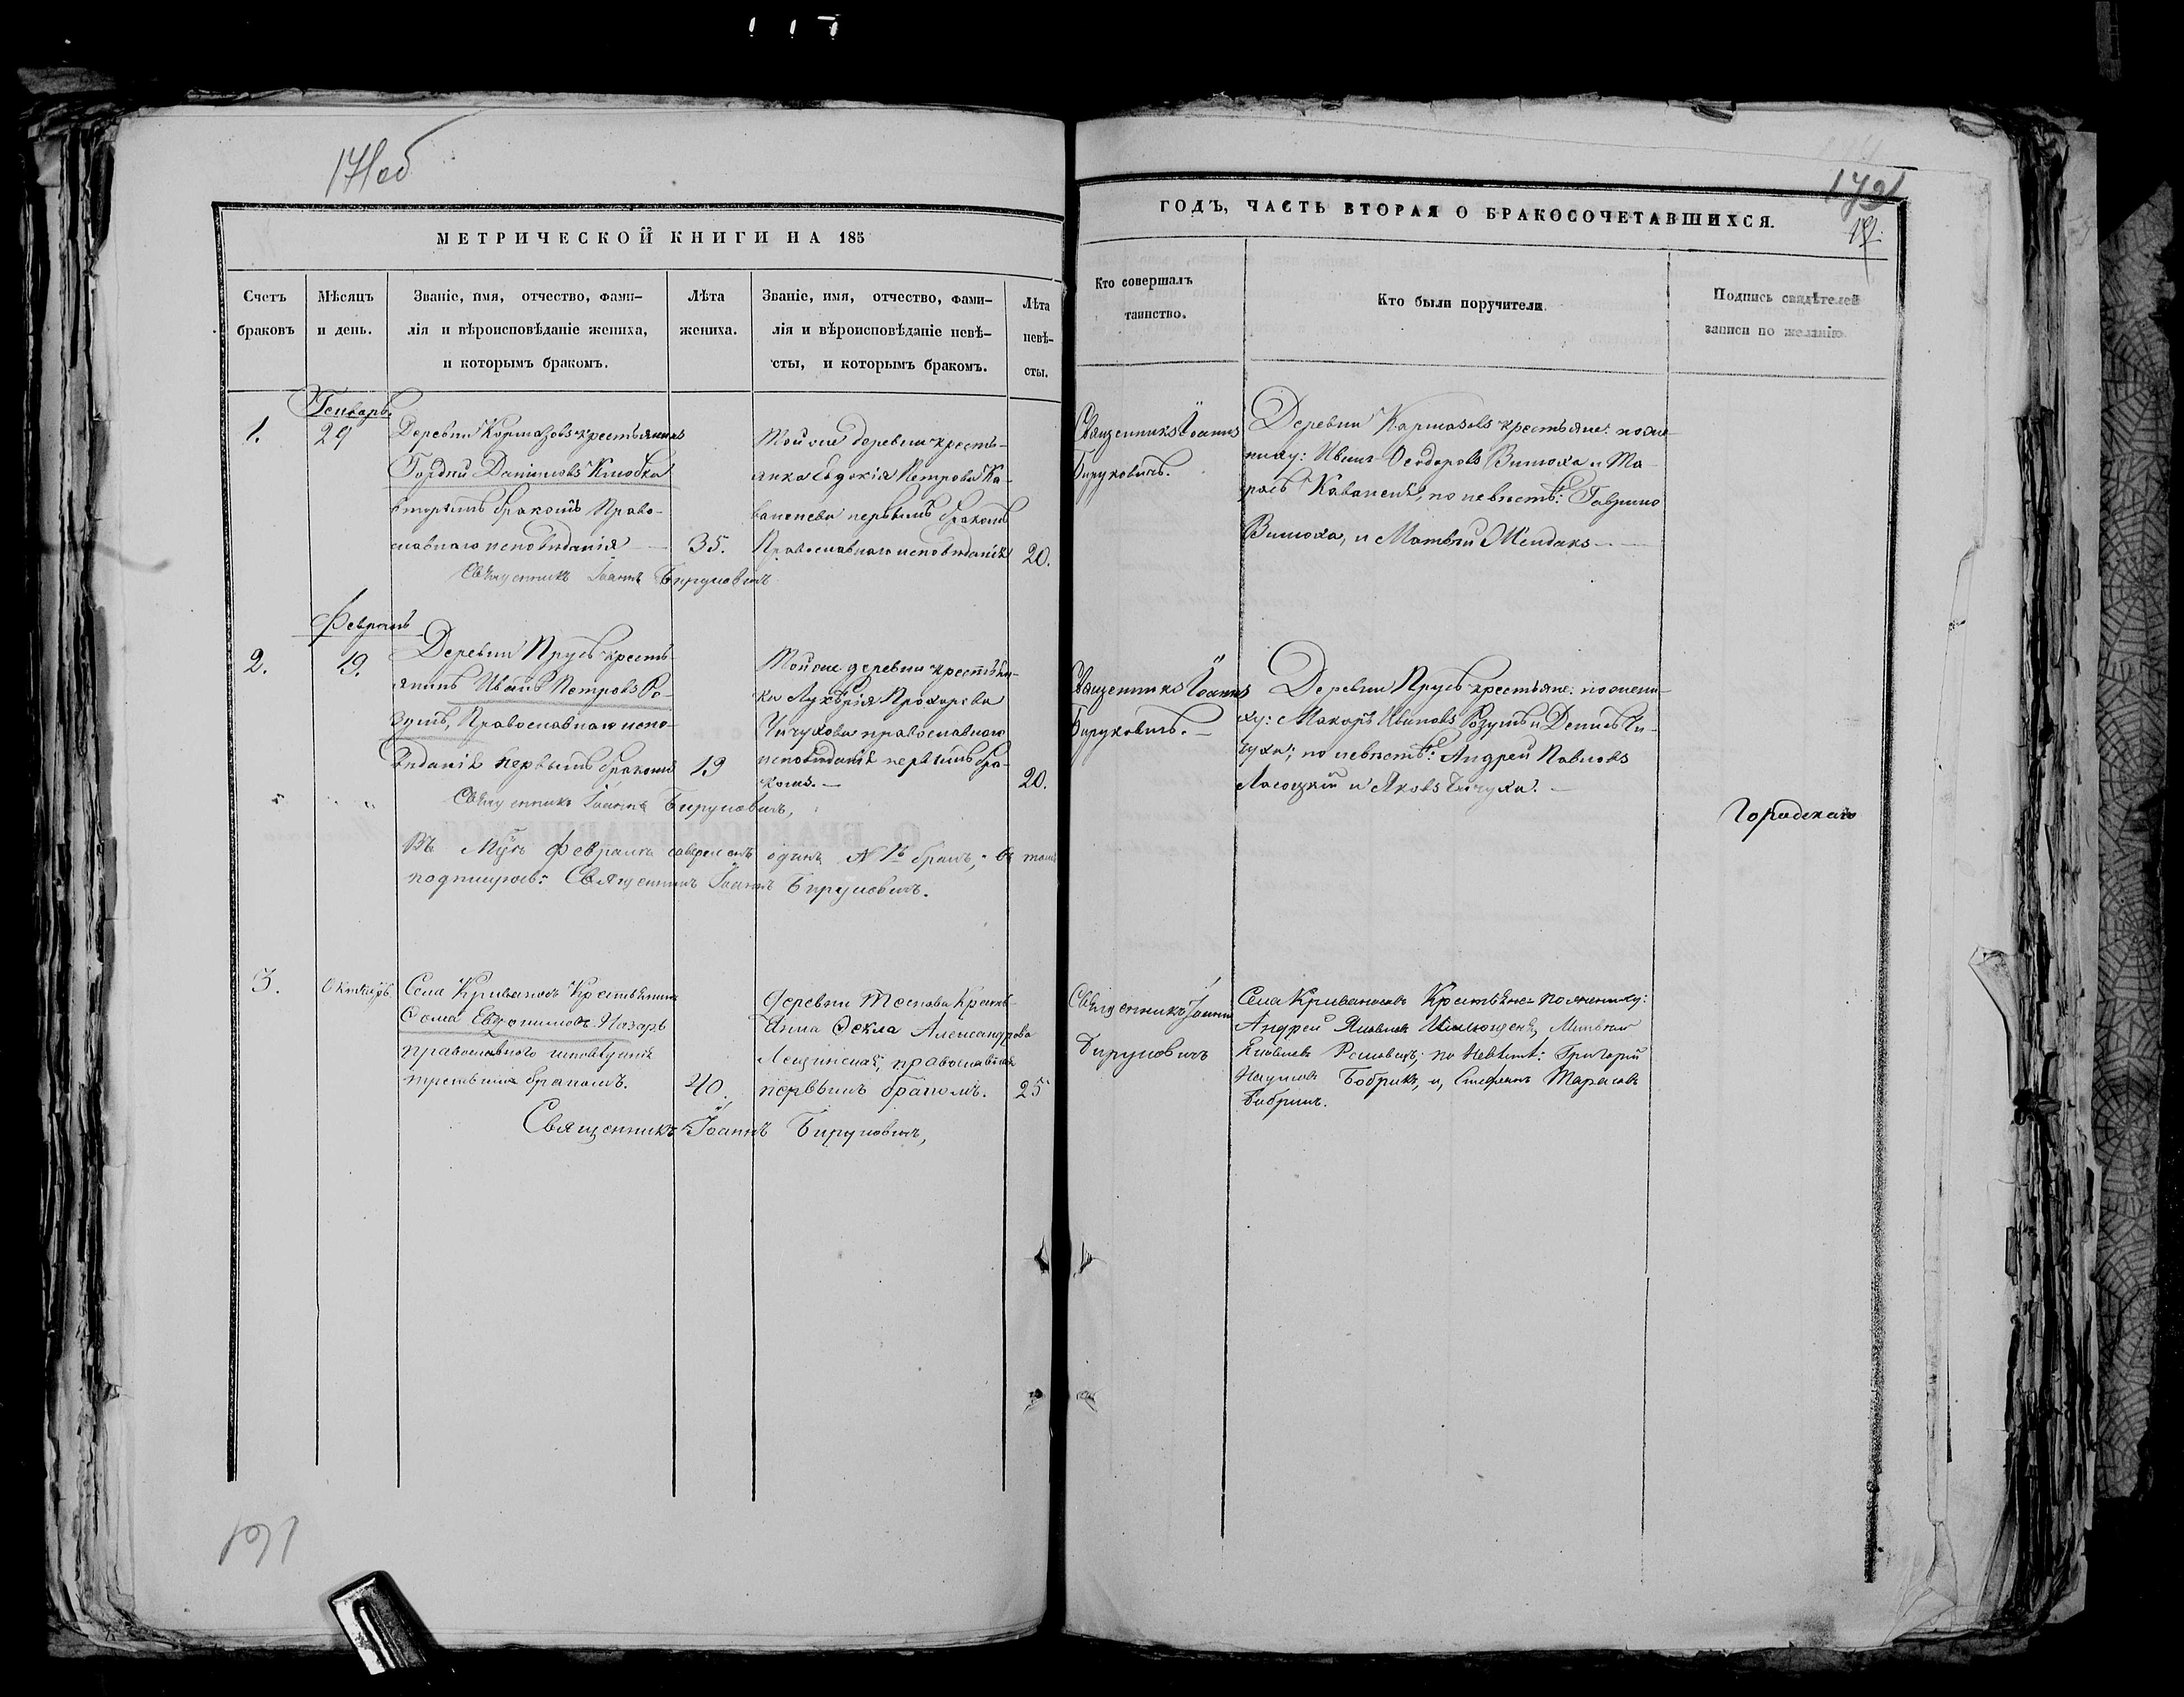 171об
МЕТРИЧЕСКОЙ КНИГИ НА 185
Счетъ браковъ
Мѣсяцъ и день.
Званіе, имя, отчество, фами-
лія и вѣроисповѣданіе жениха,
и которымъ бракомъ.
Лѣта жениха.
Званіе, имя, отчество, фами-
лія и вѣроисповѣданіе невѣ-
сты, и которымъ бракомъ.
Лѣта невѣ-
сты.
Генварь.
1.
29
Деревни Кормазовъ крестьянинъ
Гордѣй Даніиловъ
вторымъ бракомъ Право-
славнаго исповѣданія
35.
Той же деревни кресть-
янка Евдокія Петрова Ка-
первымъ бракомъ
Православнаго исповѣданія
20.
Священникъ Іоаннъ Бируковичъ
Февраль
2.
19.
Деревни Прусъ кресть-
янинъ Иванъ Петровъ Ро-
зумъ, Православнаго испо-
вѣданія первымъ бракомъ
19
Той же деревни крестьян-
ка Лукерія Прохорова
Чичухова православнаго
исповѣданія первымъ бра-
комъ.—
20.
Священникъ Іоаннъ Бируковичъ,
Въ Мцѣ Февралѣ одинъ бракъ, въ томъ
подписуюсь: Священникъ Іоаннъ Бируковичъ.
3.
Октябрь
Села Криваносовъ Крестьянинъ
Ѳома Евфимиовъ Назаръ
православнаго исповѣданія
третьимъ бракомъ.
40.
Деревни Тоснова Кресть-
янка Ѳекла Александрова
Лещинская, православная
первымъ бракомъ.
25
Священникъ Іоаннъ Бируковичъ,
191
ГОДЪ, ЧАСТЬ ВТОРАЯ О БРАКОСОЧЕТАВШИХСЯ.
172
Кто совершалъ
таинство.
Кто были поручители.
Подпись свидѣтелей
записи по желанію.
Священникъ Іоаннъ
Бируковичъ.
Деревни Кармазовъ крестьяне: по же-
ниху: Иванъ Ѳеодоровъ Вишоха и Та-
расъ Каванецъ, по невѣстѣ: Гаврило
Вишоха, и Матвѣй Жендакъ
Священникъ Іоаннъ
Бируковичъ.—
Деревни Прусъ крестьяне: по жени-
ху: Макаръ Ивановъ Розумъ и Денисъ Чи-
чуха; по невѣстѣ: Андрей Павловъ
Ласоцкій и Яковъ Чичуха.—
Городскаго
Священникъ Іоаннъ
Бируковичъ
Села Криваносовъ Крестьяне: по жениху:
Андрей Яковлевъ
Яковлевъ по невѣстѣ: Григорій
Наумовъ Бобрикъ, и, Стефанъ Тарасовъ
Бобрикъ.